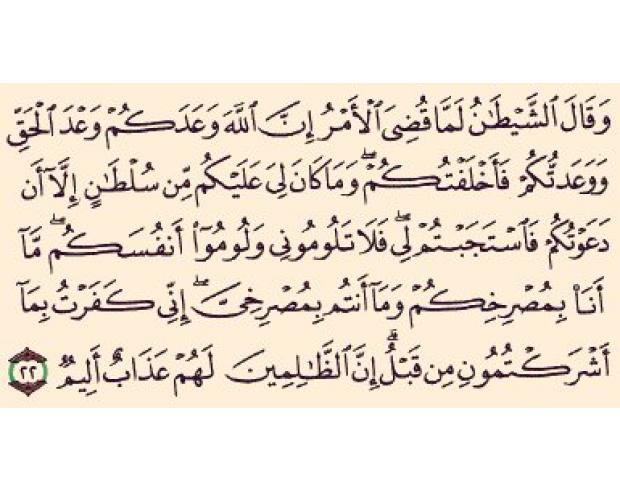 وَقَالَ ٱلشَّيْطَٰنُ لَمَّا قُضِىَ ٱلْأَمْرُ إِنَّ ٱللَّهَ وَعَدَكُمْ وَعْدَ ٱلْحَقِّ
وَوَعَدتُّكُمْ فَأَخْلَفْتُكُمْ ۖ وَمَا كَانَ لِىَ عَلَيْكُم مِّن سُلْطَٰنٍ إِلَّآ أَن
دَعَوْتُكُمْ فَٱسْتَجَبْتُمْ لِى ۖ فَلَا تَلُومُونِى وَلُومُوٓا۟ أَنفُسَكُم ۖ مَّآ
أَنَا۠ بِمُصْرِخِكُمْ وَمَآ أَنتُم بِمُصْرِخِىَّ ۖ إِنِّى كَفَرْتُ بِمَآ
أَشْرَكْتُمُونِ مِن قَبْلُ ۗ إِنَّ ٱلظَّٰلِمِينَ لَهُمْ عَذَابٌ أَلِيمٌ ٢٢